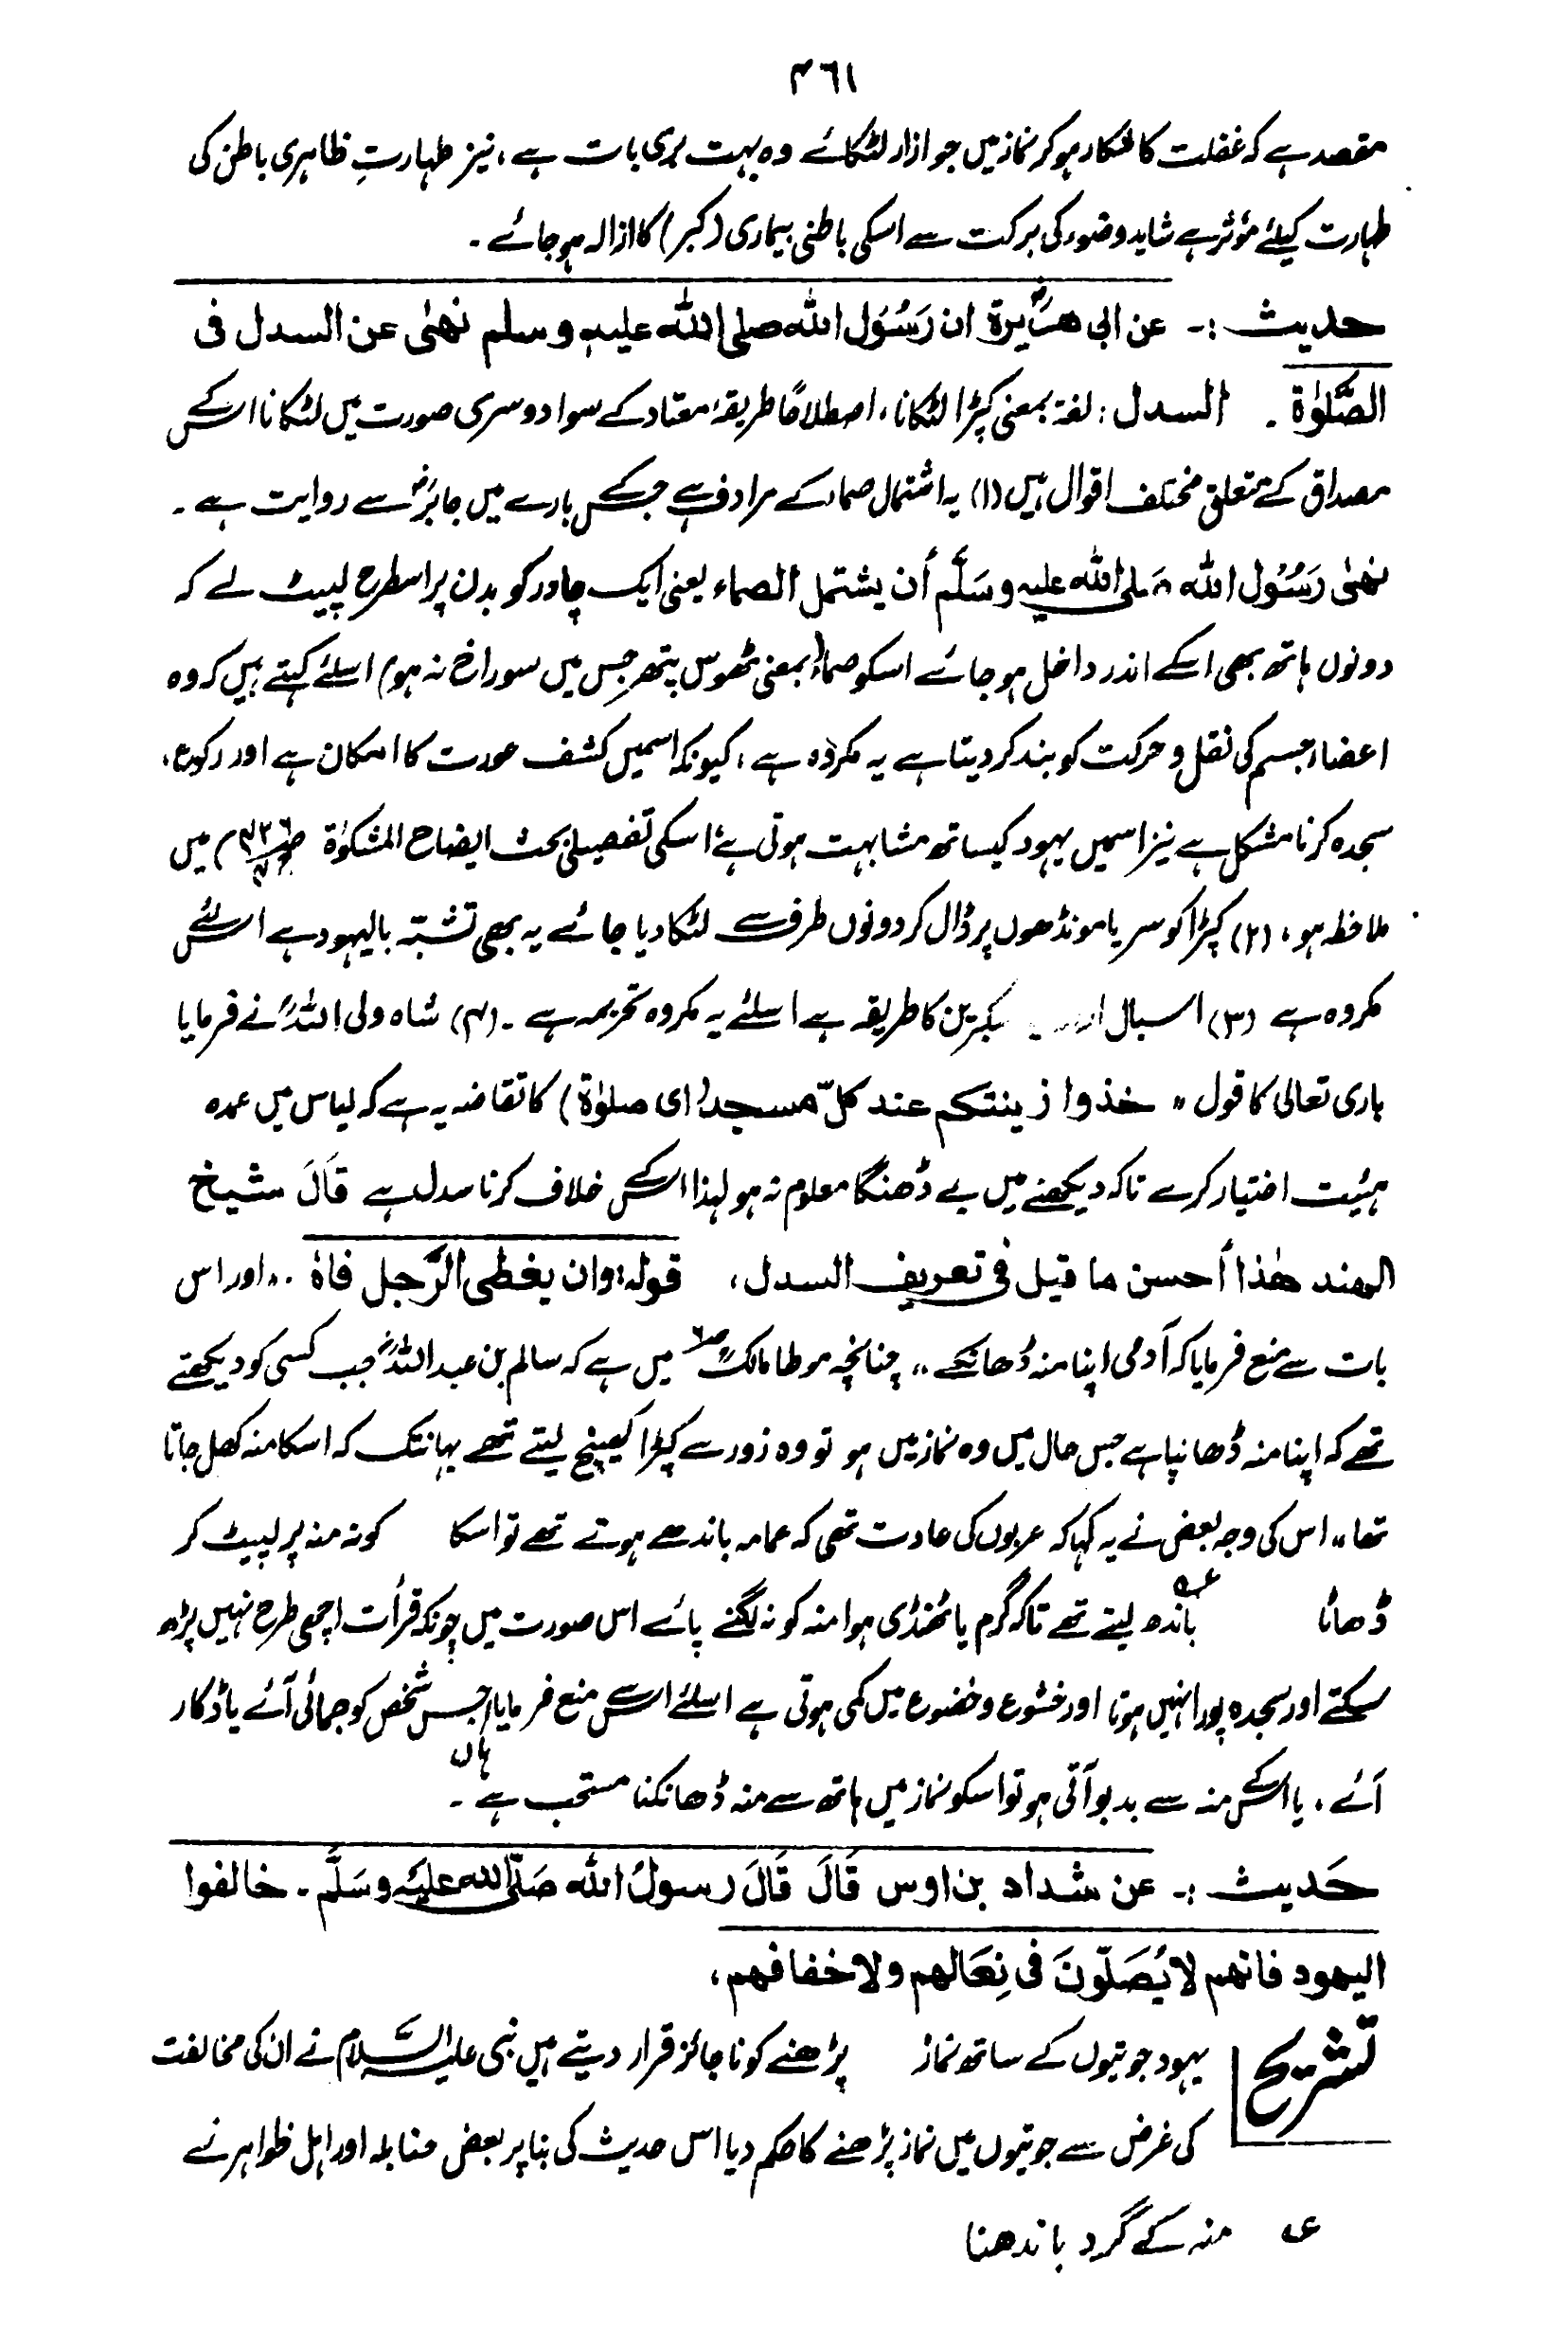 ۴٦١
مقصد ہے کہ غفلت کا شکار ہو کر نماز میں جو ازار لٹکائے وہ بہت بری بات ہے ، نیز طہارتِ ظاہری باطن کی
طہارت کیلئے مؤثر ہے شاید وضوء کی برکت سے اسکی باطنی بیماری (کبر) کا ازالہ ہو جائے ۔
حدیث :۔ عن ابی هریرة ان رَسُوْل الله صلی الله علیه وسلم نهٰی عن السدل فی
الصَّلوٰة ۔ السدل : لغۃ بمعنی کپڑا لٹکانا ، اصطلاحًا طریقۂ معتاد کے سوا دوسری صورت میں لٹکانا اسکے
مصداق کے متعلق مختلف اقوال ہیں (۱) یہ اشتمال صماء کے مرادف ہے جسکے بارے میں جابرؓ سے روایت ہے ۔
نهٰی رَسُوْل الله صَلی الله علیه وسَلَّم أن یشتمل الصماء یعنی ایک چادر کو بدن پر اسطرح لپیٹ لے کہ
دونوں ہاتھ بھی اسکے اندر داخل ہو جائے اسکو صماء (بمعنی ٹھوس پتھر جس میں سوراخ نہ ہو) اسلئے کہتے ہیں کہ وہ
اعضاء جسم کی نقل و حرکت کو بند کر دیتا ہے یہ مکروہ ہے ، کیونکہ اسمیں کشف عورت کا امکان ہے اور رکوع ،
سجدہ کرنا مشکل ہے نیز اسمیں یہود کیساتھ مشابہت ہوتی ہے ، اسکی تفصیلی بحث ایضاح المشکوٰۃ میں
ملاحظہ ہو ، (۲) کپڑا کو سر یا مونڈھوں پر ڈال کر دونوں طرف سے لٹکا دیا جائے یہ بھی تشبّہ بالیہود ہے اسلئے
مکروہ ہے (۳) اسبال کا طریقہ ہے اسلئے یہ مکروہ تحریمہ ہے ۔ (۴) شاہ ولی اللہؒ نے فرمایا
باری تعالٰی کا قول " خذوا زینتکم عند کلّ مسجد (ای صلوٰة) کا تقاضہ یہ ہے کہ لباس میں عمدہ
ہیئت اختیار کرے تاکہ دیکھنے میں بے ڈھنگا معلوم نہ ہو لہذا اسکے خلاف کرنا سدل ہے قَالَ شیخ
الهند هٰذا أحسن ما قیل فی تعریف السدل ، قوله : وان یغطی الرَّجل فاهُ ۔ " اور اس
بات سے منع فرمایا کہ آدمی اپنا منہ ڈھانکے " چنانچہ موطا مالکؒ میں ہے کہ سالم بن عبداللہؒ جب کسی کو دیکھتے
تھے کہ اپنا منہ ڈھانپا ہے جس حال میں وہ نماز میں ہو تو وہ زور سے کپڑا کھینچ لیتے تھے یہانتک کہ اسکا منہ کھل جاتا
تھا " اس کی وجہ بعض نے یہ کہا کہ عربوں کی عادت تھی کہ عمامہ باندھے ہوتے تھے تو اسکا کونہ منہ پر لپیٹ کر
ڈھاٹا باندھ لیتے تھے تاکہ گرم یا ٹھنڈی ہوا منہ کو نہ لگنے پائے اس صورت میں چونکہ قرأت اچھی طرح نہیں پڑھ
سکتے اور سجدہ پورا نہیں ہوتا اور خشوع و خضوع میں کمی ہوتی ہے اسلئے اس سے منع فرمایا ہاں جس شخص کو جمائی آئے یا ڈکار
آئے ، یا اسکے منہ سے بدبو آتی ہو تو اسکو نماز میں ہاتھ سے منہ ڈھانکنا مستحب ہے ۔
حَدیث :۔ عن شداد بن اوس قَالَ قَالَ رسولُ الله صَلّی الله علیه وسَلَّم ۔ خالفوا
الیهود فانهم لا یُصَلّونَ فی نِعَالهم ولا خفافهم ،
تشریح یہود جوتیوں کے ساتھ نماز پڑھنے کو ناجائز قرار دیتے ہیں نبی علیہ السَّلام نے ان کی مخالفت
کی غرض سے جوتیوں میں نماز پڑھنے کا حکم دیا اس حدیث کی بنا پر بعض حنابلہ اور اہل ظواہر نے
عہ منہ کے گرد باندھنا